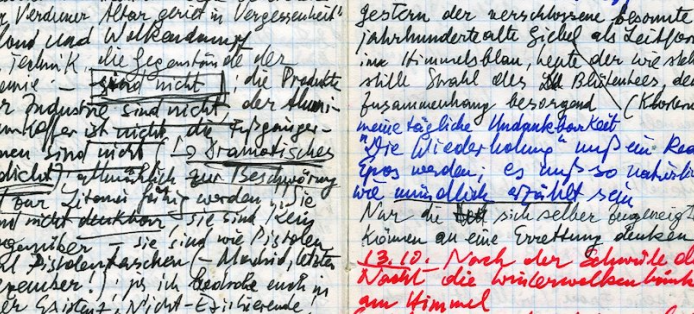 Verduner Altar geriet in Vergessenheit"
und Wolkendampf
Technik, die Gegenstände der
sind nicht, die Produkte
Industrie sind nicht, der Alumi-
ist nicht, die Fußgänger-
nen sind nicht! Dramatisches
Gedicht, allmählich zur Beschwörung
zur Litanei fähig werden, Sie
nicht denkbar, sie sind kein
Gegenüber, sie sind wie Pistolen
Pistolentaschen (– Madrid, letzter
ich bedrohe euch in
der Existenz, Nicht-Existierende!
gestern der verschlossene besonnte
jahrhundertealte Giebel als
im Himmelsblau, heute der wie
stille Strahl des Blöken des
Zusammenhang besorgend (Kloster
meine tägliche Undankbarkeit
"Die Wiederholung" muß ein
Epos werden; es muß so natürlich
wie mündlich erzählt sein
Nur die sich selber zugeneigt
können an eine Errettung denken
13.10. Nach der Schwüle der
Nacht die Winterwolken
am Himmel